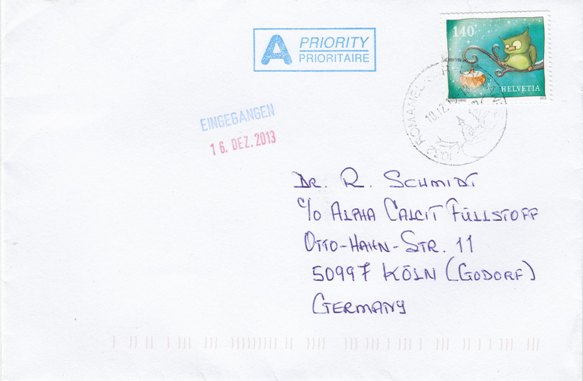 A PRIORITY
PRIORITAIRE
140
HELVETIA
EINGEGANGEN
16. DEZ. 2013
Dr. R. Schmidt
c/o Alpha Calcit Füllstoff
Otto-Hahn-Str. 11
50997 Köln (Godorf)
Germany